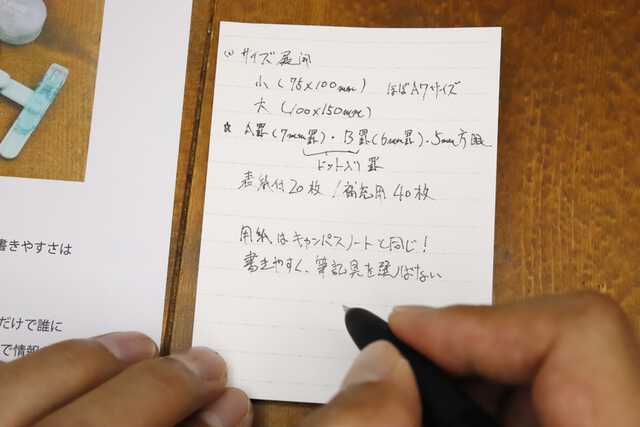 (v) サイズ展開
小 (75×100mm) ほぼA7サイズ
大 (100×150mm)
☆ A罫(7mm罫)・B罫(6mm罫)・5mm方眼
ドット入り罫
表紙付20枚 / 補充用40枚
用紙はキャンパスノートと同じ!
書きやすく、筆記具を選ばない
書きやすさは
だけで誰に
で情報